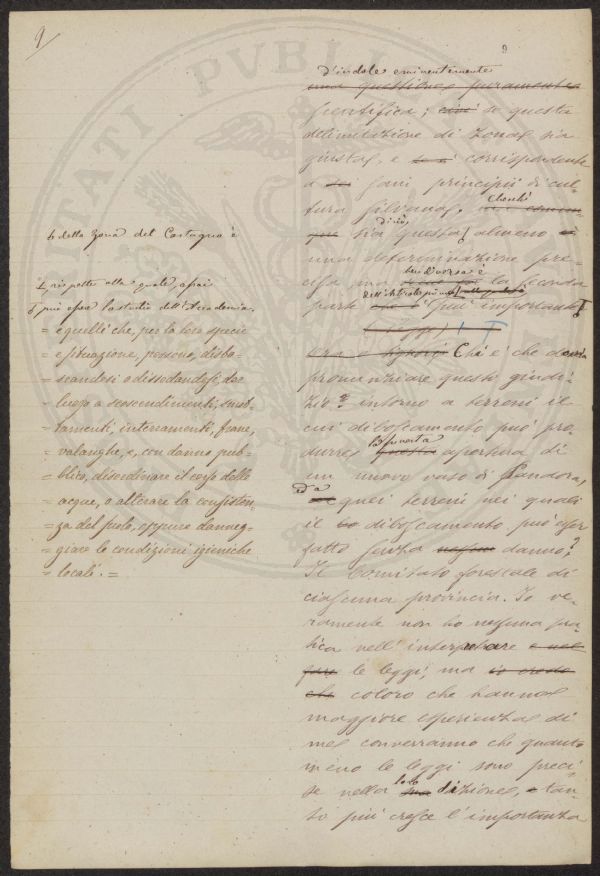 9
RIATI PVBLI
della zona del Castagno è
rispetto alla quale, assai
può esser lo studio dell'Accademia.
= e quelli che, per la loro specie
= e situazione, possono, disbo-
= scandosi o dissodandosi, dar
= luogo a scoscendimenti, smot-
= tamenti, interramenti, frane,
= valanghe, e, con danno pub-
= blico, disordinare il corso delle
= acque, o alterare la consisten-
= za del suolo, oppure danneg-
= giare le condizioni igieniche
= locali. =
d'indole eminentemente
una questione puramente
scientifica; cioè se questa
delimitazione di zona sia
giusta, e se è corrispondente
a dei sani principii di cul-
tura silvana. Checchè
dicasi
que sia questa almeno è
una determinazione pre-
cisa, ma la seconda
ben diversa è
parte più importante
era e Chi è che dovrà
pronunziare questi giudi-
zio? intorno a terreni il
cui diboscamento può pro-
durre questa apertura di
la funesta
un nuovo vaso di Pandora,
da quei terreni nei quali
il lo diboscamento può esser
fatto senza nessun danno?
Il Comitato forestale di
ciascuna provincia. Io ve-
ramente non ho nessuna pra-
tica nell'interpretare e nel
fare le leggi, ma io credo
che coloro che hanno
maggiore esperienza di
me converranno che quanto
meno le leggi sono preci-
se nella sua dizione, e tan-
loro
to più cresce l'importanza